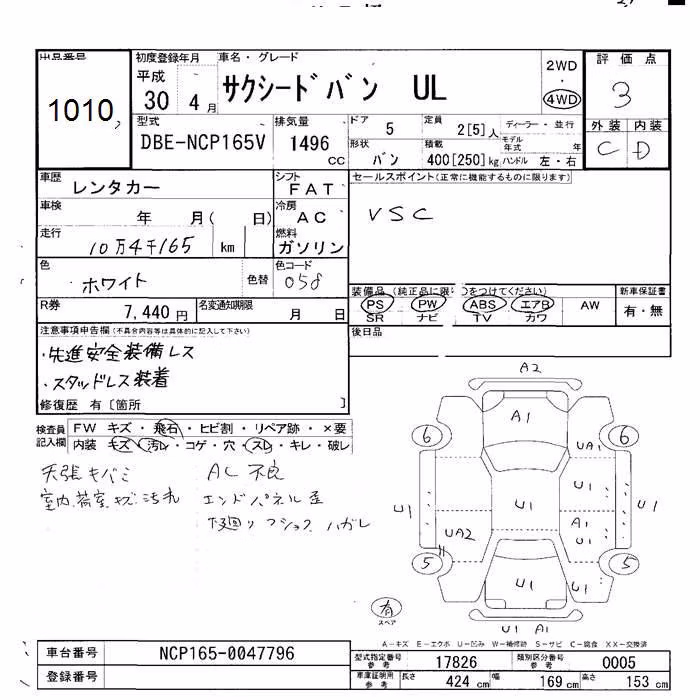 出品番号
1010
初度登録年月
平成
30 4月
車名・グレード
サクシードバン UL
2WD
・
4WD
評価点
3
外装 内装
C D
型式
DBE-NCP165V
排気量
1496
CC
ドア 5
形状 バン
定員 2[5]人
積載 400[250]kg
ディーラー・並行
モデル年式 年
ハンドル 左・右
車歴 レンタカー
シフト FAT
車検 年 月( 日)
冷房 AC
走行 10万4千165 km
燃料 ガソリン
色 ホワイト 色替
色コード 058
R券 7,440円
名変通知期限 月 日
セールスポイント(正常に機能するものに限ります)
VSC
装備品 (純正品に限り○をつけてください)
新車保証書
PS PW ABS エアB AW
SR ナビ TV カワ
有・無
後日品
注意事項申告欄(不具合内容等は具体的に記入して下さい)
・先進安全装備レス
・スタッドレス装着
修復歴 有[箇所 ]
検査員記入欄
FW キズ・飛石・ヒビ割・リペア跡・×要
内装 キズ・汚レ・コゲ・穴・スレ・キレ・破レ
天張キバミ
室内、荷室、キズ・汚れ
AC 不良
エンドパネル歪
下廻り ハガレ
A2
A1
6
6
U1
U1
U1
U1
A1
U1
U1
UA2
5
5
U1
U1
有
スペア
U1 A1
A-キズ E-エクボ U-凹み W-補修跡 S-サビ C-腐食 XX-交換済
車台番号 NCP165-0047796
登録番号
型式指定番号 参考 17826
類別区分番号 参考 0005
車庫証明用 参考 長さ 424 cm 幅 169 cm 高さ 153 cm